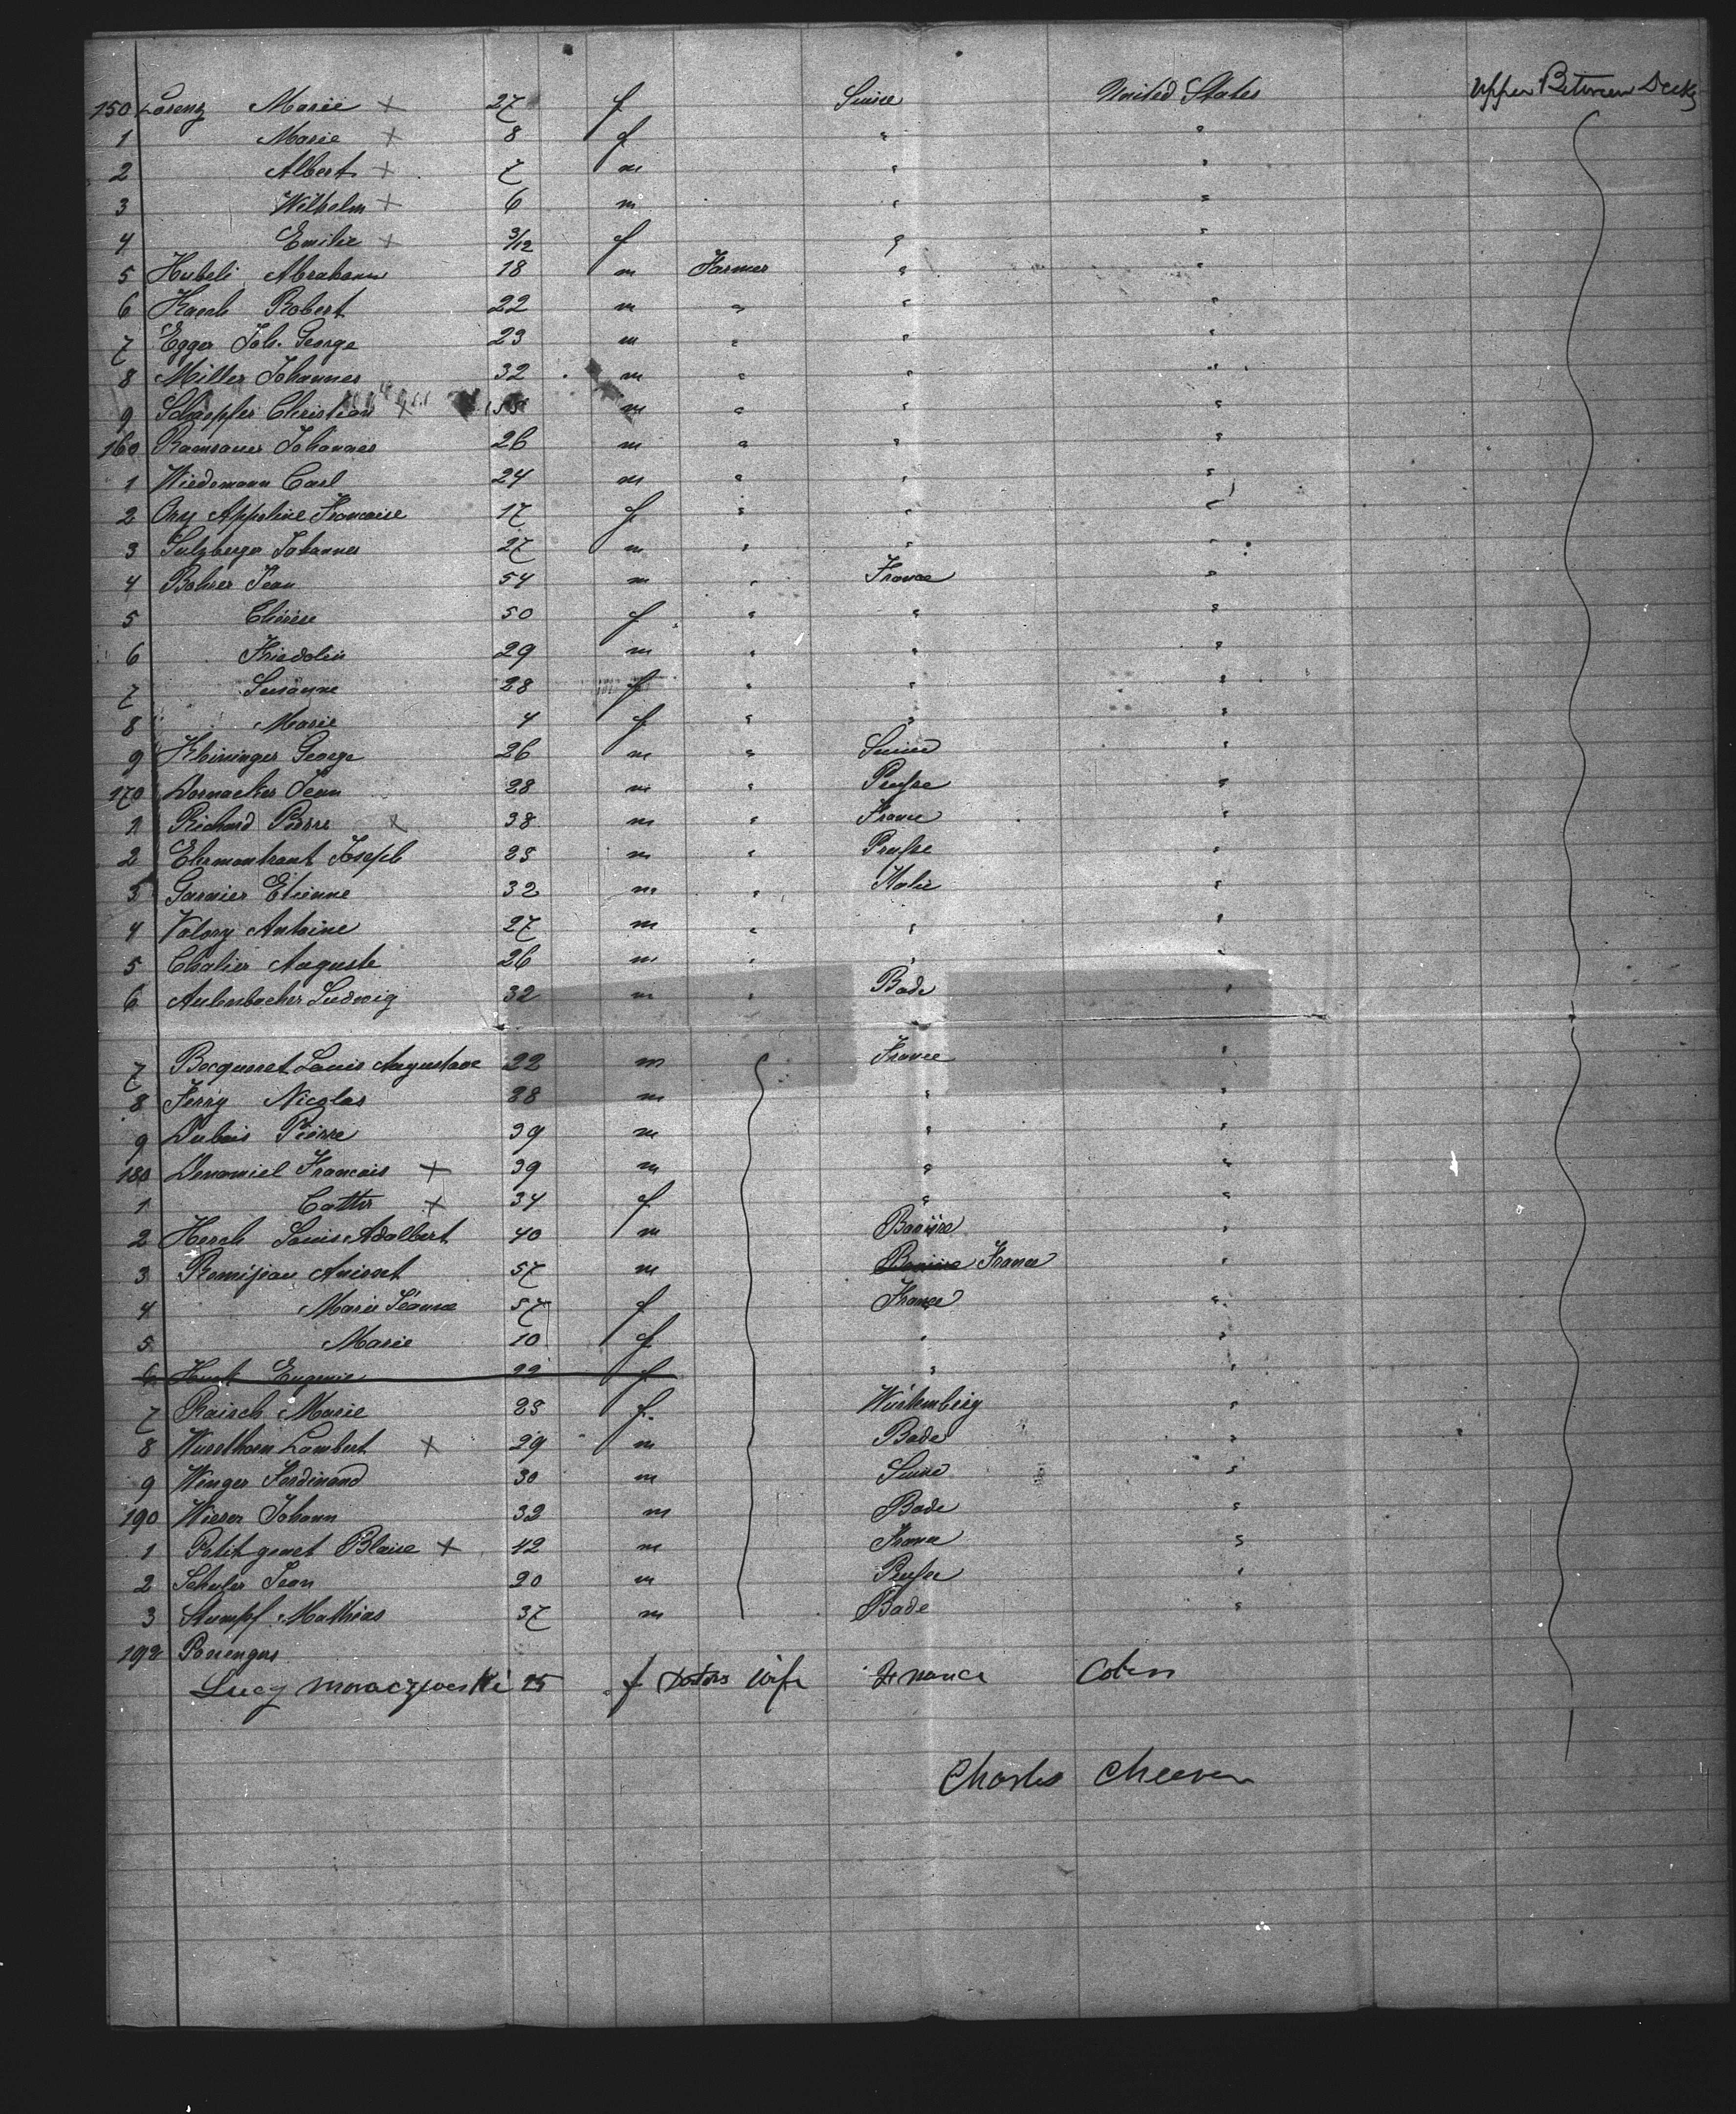 150 Lorenz Marie × 27 f Suisse United States Upper Between Decks
1 Marie × 8 f " "
2 Albert × 7 m " "
3 Wilhelm × 6 m " "
4 Emilie × 3/12 f " "
5 Hubeli Abraham 18 m Farmer " "
6 Robert 22 m " " "
7 Egger Joh. George 23 m " " "
8 Miller Johannes 32 m " " "
9 Schaepfer Christian × m " " "
160 Ramsauer Johannes 26 m " " "
1 Wiedemann Carl 24 m " " "
2 Ory Appoline Francoise 17 f " " "
3 Sulzberger Johannes 27 m " " "
4 Bohrer Jean 54 m " France "
5 50 f " " "
6 Friedolin 29 m " " "
7 Susanne 28 f " " "
8 Marie 4 f " " "
9 Kleininger George 26 m " Suisse "
170 Dornacker Jean 28 m " Prusse "
1 Richard Pierre × 38 m " France "
2 Ehrmantraut Joseph 23 m " Prusse "
3 Garnier Etienne 32 m " Italie "
4 Valory Antoine 27 m " " "
5 Chalier Auguste 26 m " " "
6 Ludwig 32 m " Bade "
7 Bocquenet Louis Augustave 22 m France "
8 Ferry Nicolas 28 m " "
9 Dubois Pierre 39 m " "
180 Denomiel Francois × 39 m " "
1 Cather × 34 f " "
2 Horch Louis Adalbert 40 m Bavière "
3 Remijeau 57 m Bavière France "
4 Marie Jeanne 57 f France "
5 Marie 10 f " "
6 Eugenie 22 f " "
7 Raisch Marie 23 f. Würtemberg "
8 Wursthorn Lambert × 29 m Bade "
9 Wenger Ferdinand 30 m Suisse "
190 Wieser Johann 32 m Bade "
1 Petitgenet Blaise × 42 m France "
2 Schuler Jean 20 m Prusse "
3 Stumpf Mathias 37 m Bade "
192 Passengers
Lucy 25 f Doctors Wife France
Charles Cheever